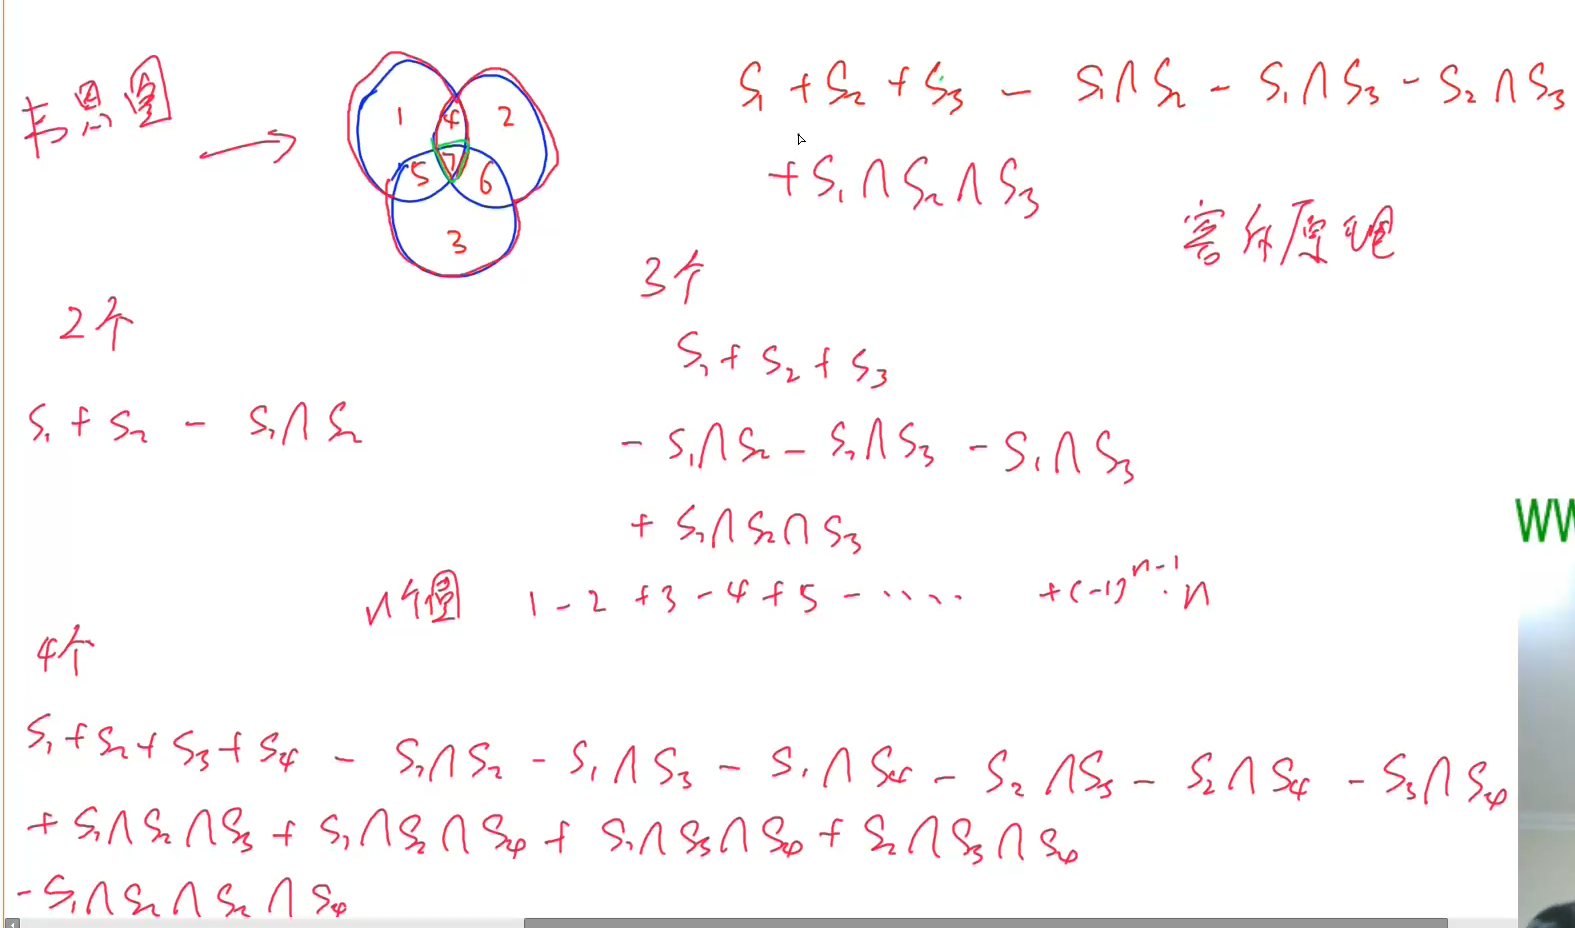 韦恩图
1 4 2
5 7 6
3
S₁ + S₂ + S₃ - S₁∩S₂ - S₁∩S₃ - S₂∩S₃
+ S₁∩S₂∩S₃
容斥原理
2个
S₁ + S₂ - S₁∩S₂
3个
S₁ + S₂ + S₃
- S₁∩S₂ - S₂∩S₃ - S₁∩S₃
+ S₁∩S₂∩S₃
n个圆 1 - 2 + 3 - 4 + 5 - ····· + (-1)ⁿ⁻¹·n
4个
S₁ + S₂ + S₃ + S₄ - S₁∩S₂ - S₁∩S₃ - S₁∩S₄ - S₂∩S₃ - S₂∩S₄ - S₃∩S₄
+ S₁∩S₂∩S₃ + S₁∩S₂∩S₄ + S₁∩S₃∩S₄ + S₂∩S₃∩S₄
- S₁∩S₂∩S₂∩S₄